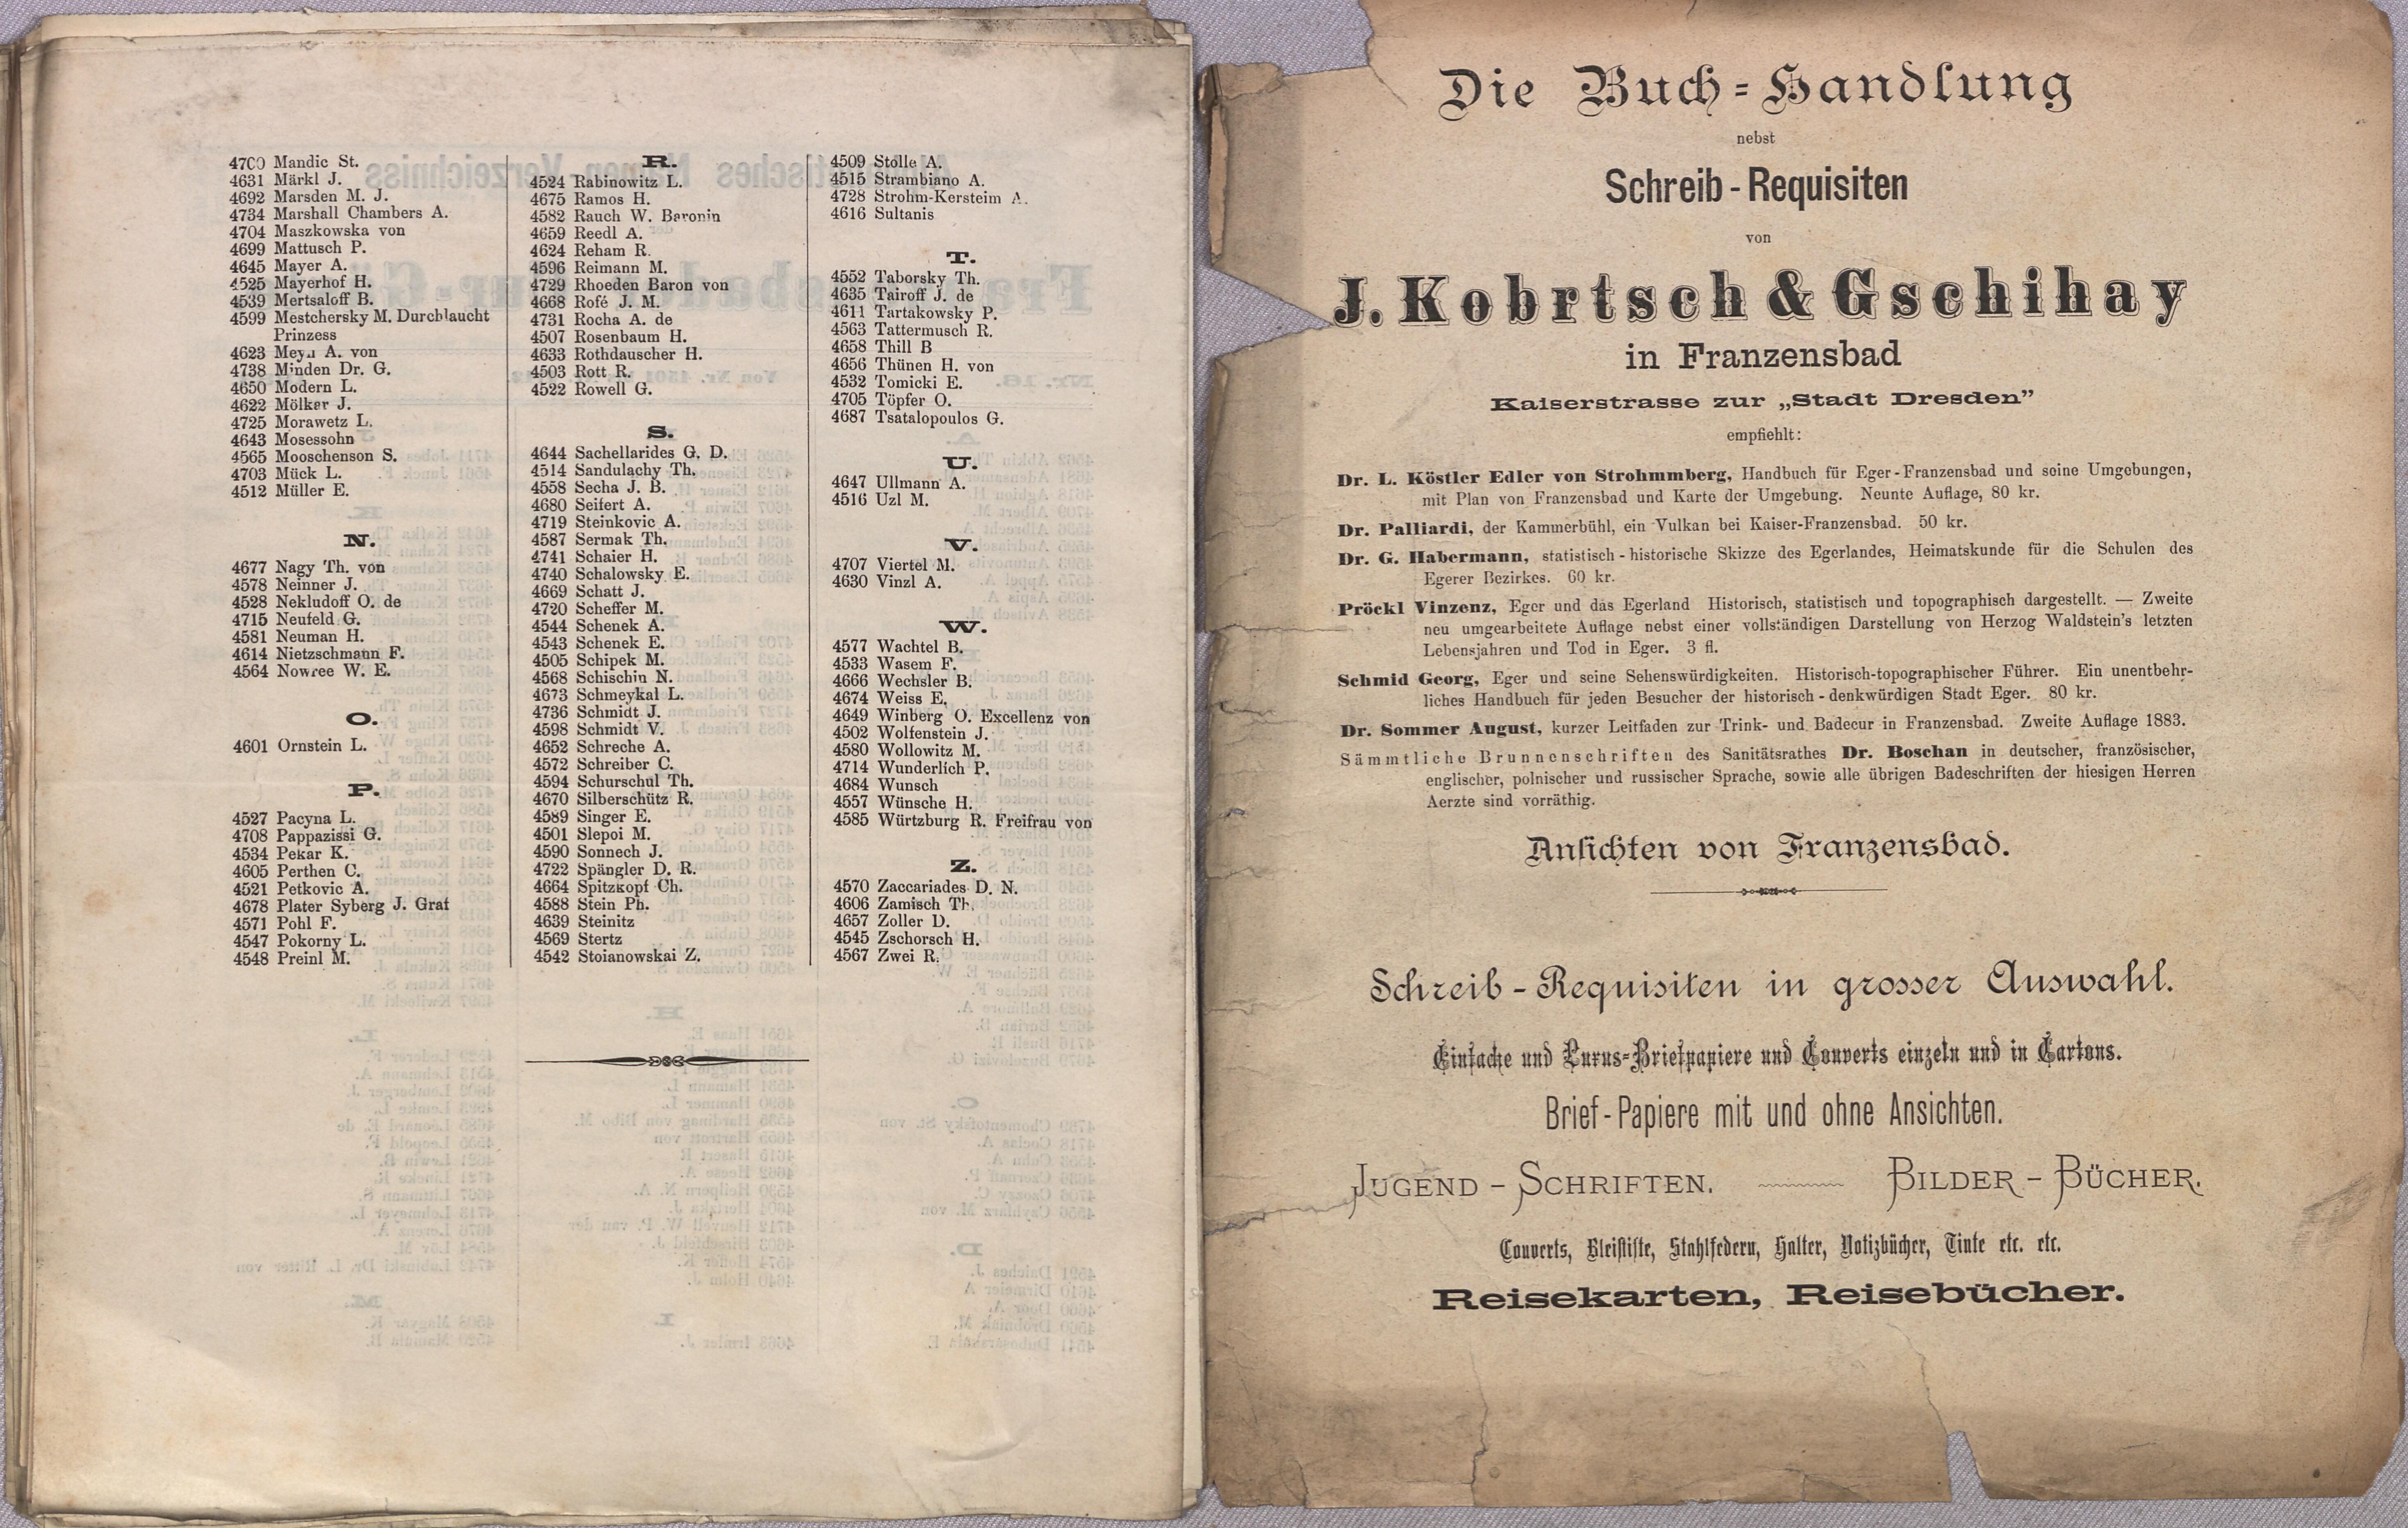 4700 Mandic St.
4631 Märkl J.
4692 Marsden M. J.
4734 Marshall Chambers A.
4704 Maszkowska von
4699 Mattusch P.
4645 Mayer A.
4525 Mayerhof H.
4539 Mertsaloff B.
4599 Mestchersky M. Durchlaucht
Prinzess
4623 Meyn A. von
4738 Minden Dr. G.
4650 Modern L.
4622 Mölker J.
4725 Morawetz L.
4643 Mosessohn
4565 Mooschenson S.
4703 Mück L.
4512 Müller E.
N.
4677 Nagy Th. von
4578 Neinner J.
4528 Nekludoff O. de
4715 Neufeld G.
4581 Neuman H.
4614 Nietzschmann F.
4564 Nowree W. E.
O.
4601 Ornstein L.
P.
4527 Pacyna L.
4708 Pappazissi G.
4534 Pekar K.
4605 Perthen C.
4521 Petkovic A.
4678 Plater Syberg J. Graf
4571 Pohl F.
4547 Pokorny L.
4548 Preinl M.
R.
4524 Rabinowitz L.
4675 Ramos H.
4582 Rauch W. Baronin
4659 Reedl A.
4624 Reham R.
4596 Reimann M.
4729 Rhoeden Baron von
4668 Rofé J. M.
4731 Rocha A. de
4507 Rosenbaum H.
4633 Rothdauscher H.
4503 Rott R.
4522 Rowell G.
S.
4644 Sachellarides G. D.
4514 Sandulachy Th.
4558 Secha J. B.
4680 Seifert A.
4719 Steinkovic A.
4587 Sermak Th.
4741 Schaier H.
4740 Schalowsky E.
4669 Schatt J.
4720 Scheffer M.
4544 Schenek A.
4543 Schenek E.
4505 Schipek M.
4568 Schischin N.
4673 Schmeykal L.
4736 Schmidt J.
4598 Schmidt V.
4652 Schreche A.
4572 Schreiber C.
4594 Schurschul Th.
4670 Silberschütz R.
4589 Singer E.
4501 Slepoi M.
4590 Sonnech J.
4722 Spängler D. R.
4664 Spitzkopf Ch.
4588 Stein Ph.
4639 Steinitz
4569 Stertz
4542 Stoianowskai Z.
4509 Stolle A.
4515 Strambiano A.
4728 Strohm-Kersteim A.
4616 Sultanis
T.
4552 Taborsky Th.
4635 Tairoff J. de
4611 Tartakowsky P.
4563 Tattermusch R.
4658 Thill B
4656 Thünen H. von
4532 Tomicki E.
4705 Töpfer O.
4687 Tsatalopoulos G.
U.
4647 Ullmann A.
4516 Uzl M.
V.
4707 Viertel M.
4630 Vinzl A.
W.
4577 Wachtel B.
4533 Wasem F.
4666 Wechsler B.
4674 Weiss E.
4649 Winberg O. Excellenz von
4502 Wolfenstein J.
4580 Wollowitz M.
4714 Wunderlich P.
4684 Wunsch
4557 Wünsche H.
4585 Würtzburg R. Freifrau von
Z.
4570 Zaccariades D. N.
4606 Zamisch Th.
4657 Zoller D.
4545 Zschorsch H.
4567 Zwei R.
Die Buch-Handlung
nebst
Schreib-Requisiten
von
J. Kobrtsch & Gschihay
in Franzensbad
Kaiserstrasse zur „Stadt Dresden”
empfiehlt:
Dr. L. Köstler Edler von Strohmmberg, Handbuch für Eger-Franzensbad und seine Umgebungen,
mit Plan von Franzensbad und Karte der Umgebung. Neunte Auflage, 80 kr.
Dr. Palliardi, der Kammerbühl, ein Vulkan bei Kaiser-Franzensbad. 50 kr.
Dr. G. Habermann, statistisch-historische Skizze des Egerlandes, Heimatskunde für die Schulen des
Egerer Bezirkes. 60 kr.
Pröckl Vinzenz, Eger und das Egerland Historisch, statistisch und topographisch dargestellt. — Zweite
neu umgearbeitete Auflage nebst einer vollständigen Darstellung von Herzog Waldstein's letzten
Lebensjahren und Tod in Eger. 3 fl.
Schmid Georg, Eger und seine Sehenswürdigkeiten. Historisch-topographischer Führer. Ein unentbehr-
liches Handbuch für jeden Besucher der historisch-denkwürdigen Stadt Eger. 80 kr.
Dr. Sommer August, kurzer Leitfaden zur Trink- und Badecur in Franzensbad. Zweite Auflage 1883.
Sämmtliche Brunnenschriften des Sanitätsrathes Dr. Boschan in deutscher, französischer,
englischer, polnischer und russischer Sprache, sowie alle übrigen Badeschriften der hiesigen Herren
Aerzte sind vorräthig.
Ansichten von Franzensbad.
Schreib-Requisiten in grosser Auswahl.
Einfache und Luxus-Briefpapiere und Couverts einzeln und in Cartons.
Brief-Papiere mit und ohne Ansichten.
Jugend-Schriften. Bilder-Bücher.
Couverts, Bleistifte, Stahlfedern, Halter, Notizbücher, Tinte etc. etc.
Reisekarten, Reisebücher.